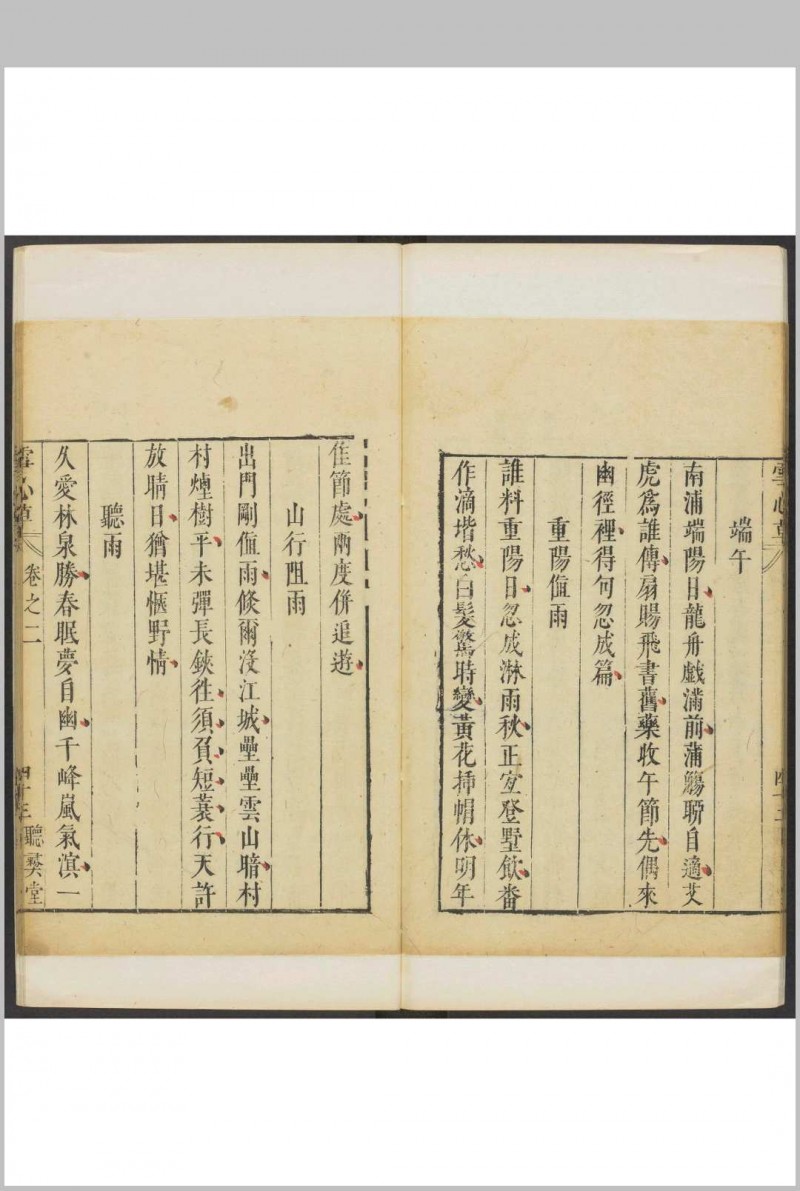 端午
南浦端陽日龍舟戯滿前蒲觴聊自適艾
虎為誰傳扇賜飛書舊藥收午節先偶來
幽徑裡得句忽成篇
重陽值雨
誰料重陽日忽成淋雨秋正宜登墅飲畨
作滴堦愁白髮驚時變黃花揷帽休明年
佳節處兩度併追遊
山行阻雨
出門剛值雨倐爾沒江城壘壘雲山暗村
村煙樹平未彈長鋏徃須負短蓑行天許
放晴日猶堪愜野情
聽雨
久愛林泉勝春眠夢自幽千峰嵐氣滃一
雪心草
卷之二
四十三
聽
堂